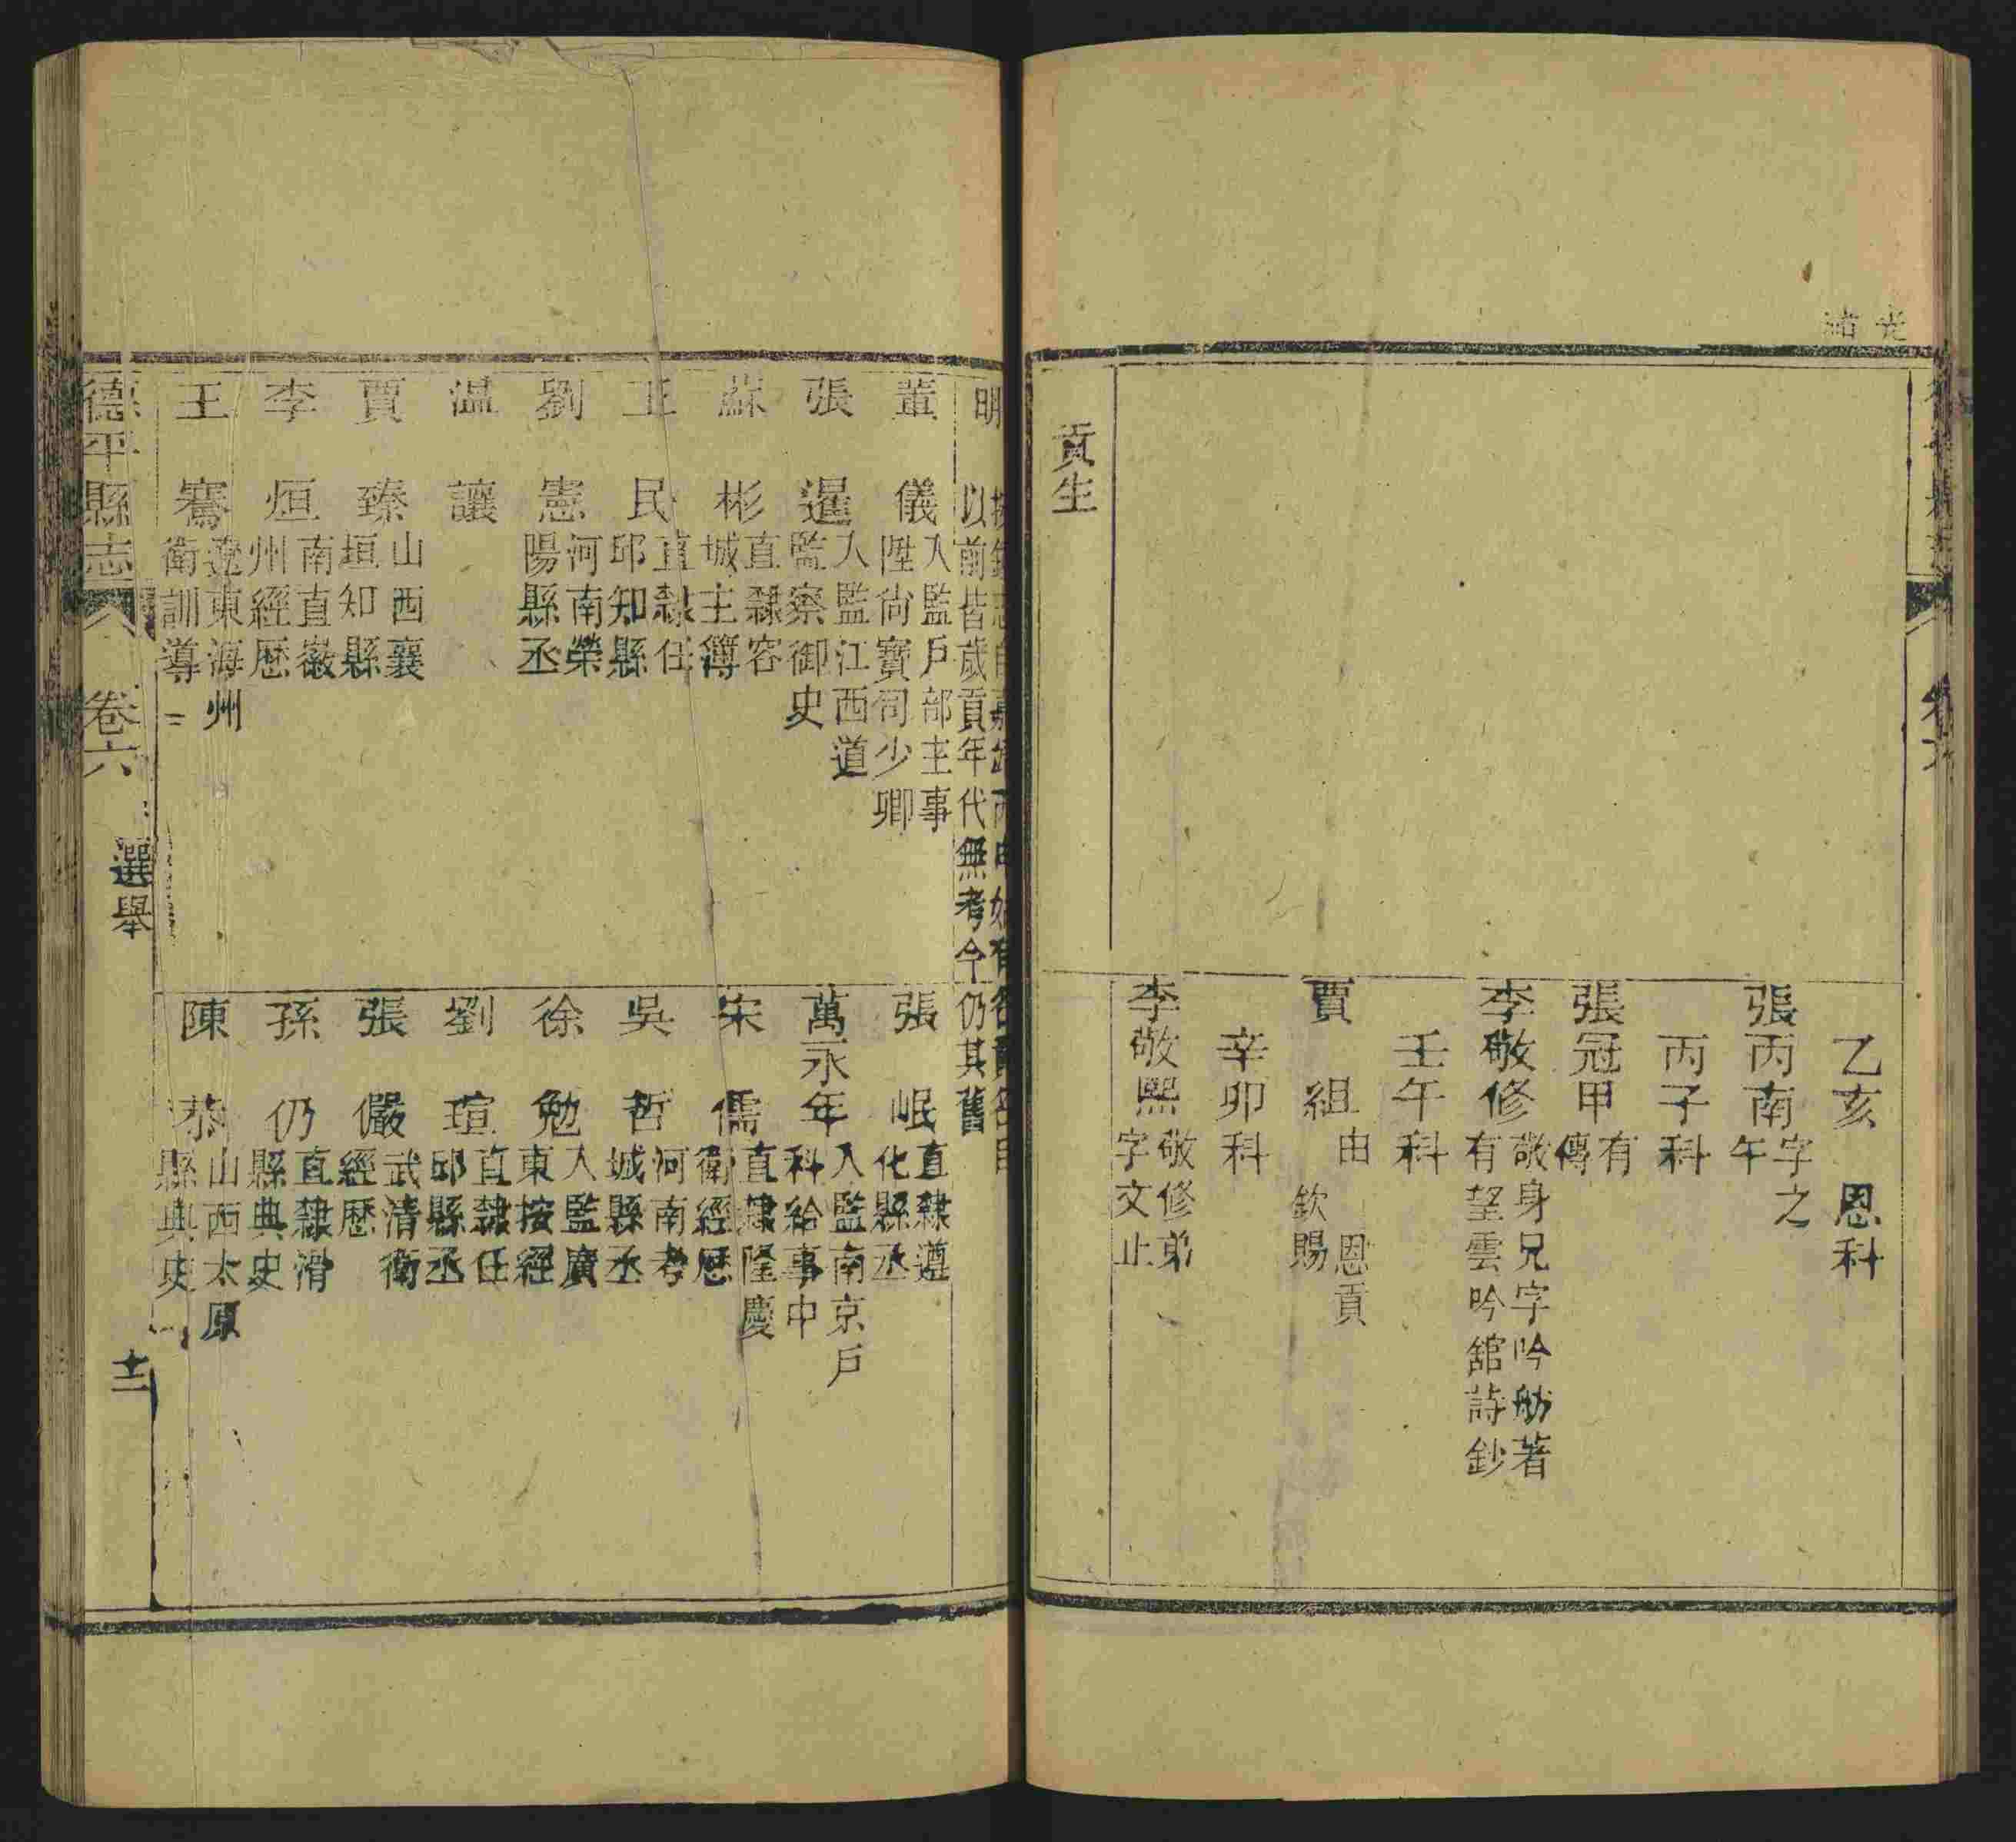 光緒
乙亥 恩科
張丙南字之午
丙子科
張冠甲有傳
李敬修敬身兄字吟舫著有望雲吟舘詩鈔
壬午科
賈 組由 恩貢 欽賜
辛卯科
李敬熙敬修弟字文止
貢生
明
以前皆歲貢年代無考今仍其舊
董 儀入監戶部主事陞尚寶司少卿
張 暹入監江西道監察御史
蘇 彬直隸容城主簿
王 民直隸任邱知縣
劉 憲河南榮陽縣丞
溫 讓
賈 臻山西襄垣知縣
李 烜南直徽州經歷
王 騫遼東海州衛訓導
張 岷直隸遵化縣丞
萬永年入監南京戶科給事中
宋 儒直隸隆慶衛經歷
吳 哲河南考城縣丞
徐 勉入監廣東按經
劉 瑄直隸任邱縣丞
張 儼武清衛經歷
孫 仍直隸滑縣典史
陳 恭山西太原縣典史
德平縣志 卷六 選舉 十二